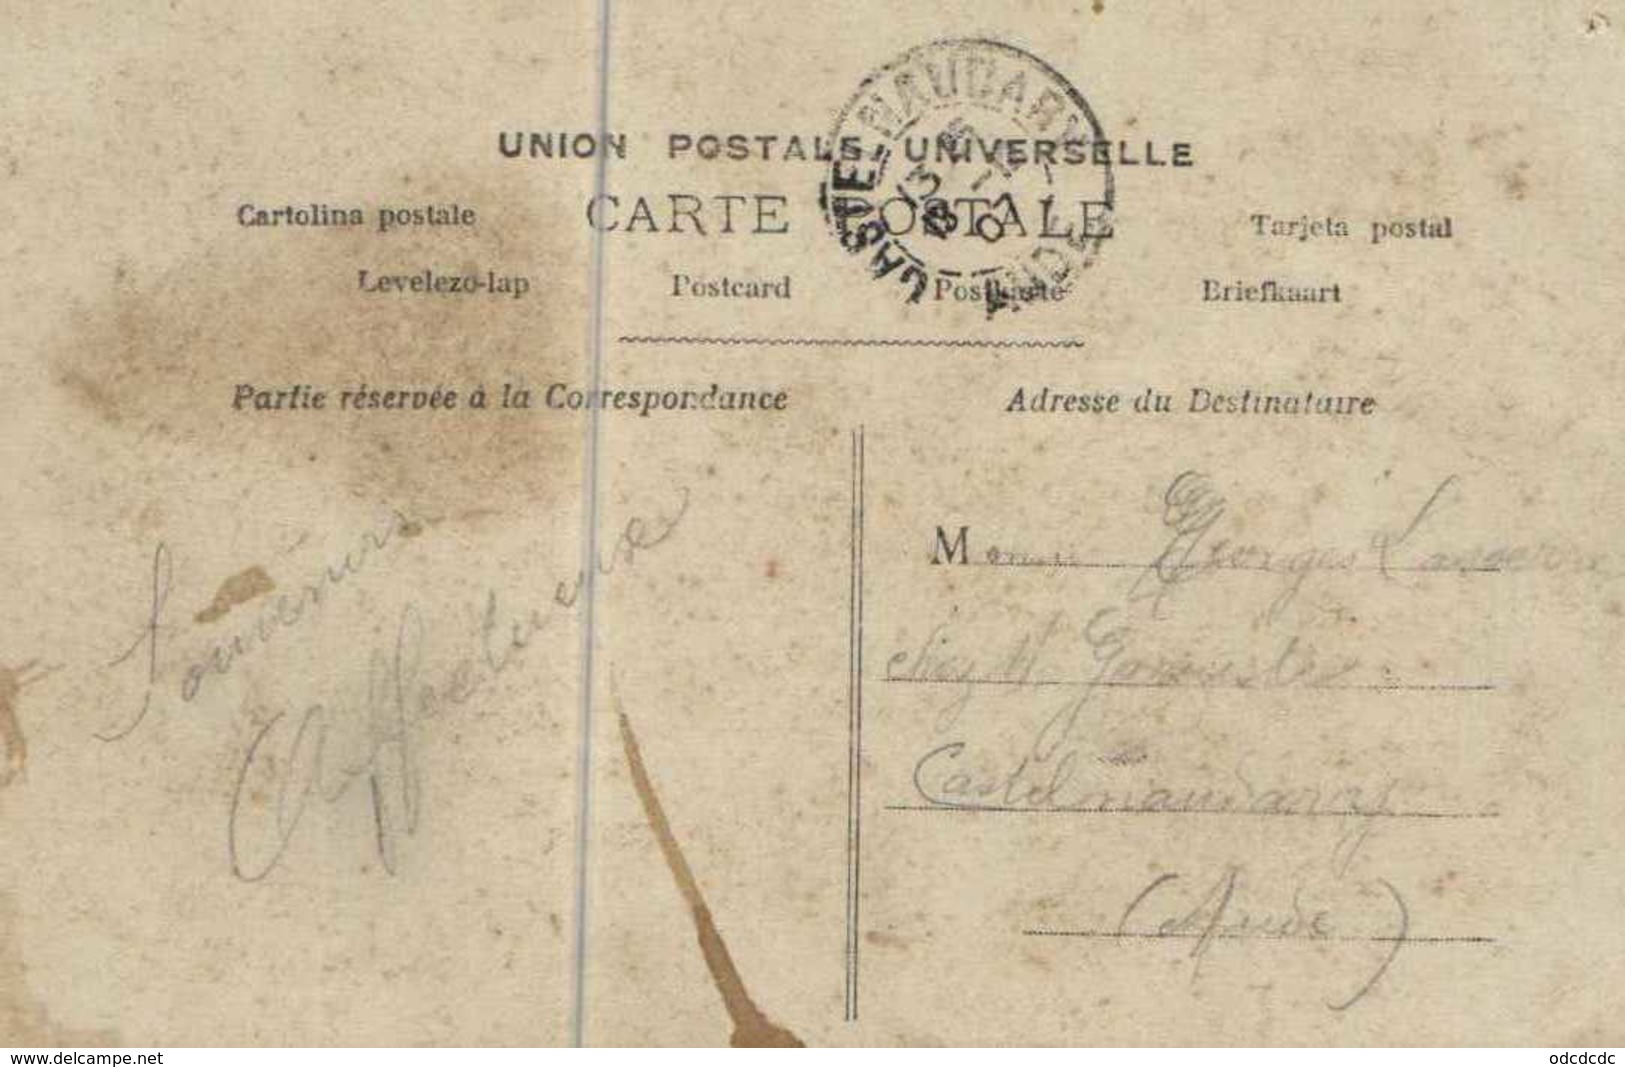 UNION POSTALE UNIVERSELLE
CARTE POSTALE
Cartolina postale
Tarjeta postal
Levelezo-lap
Postcard
Postkarte
Briefkaart
CASTELNAUDARY
AUDE
Partie réservée à la Correspondance
Adresse du Destinataire
Souvenirs
Affectueux
M
Georges
chez M
Castelnaudary
(Aude)
www.delcampe.net
odcdcdc